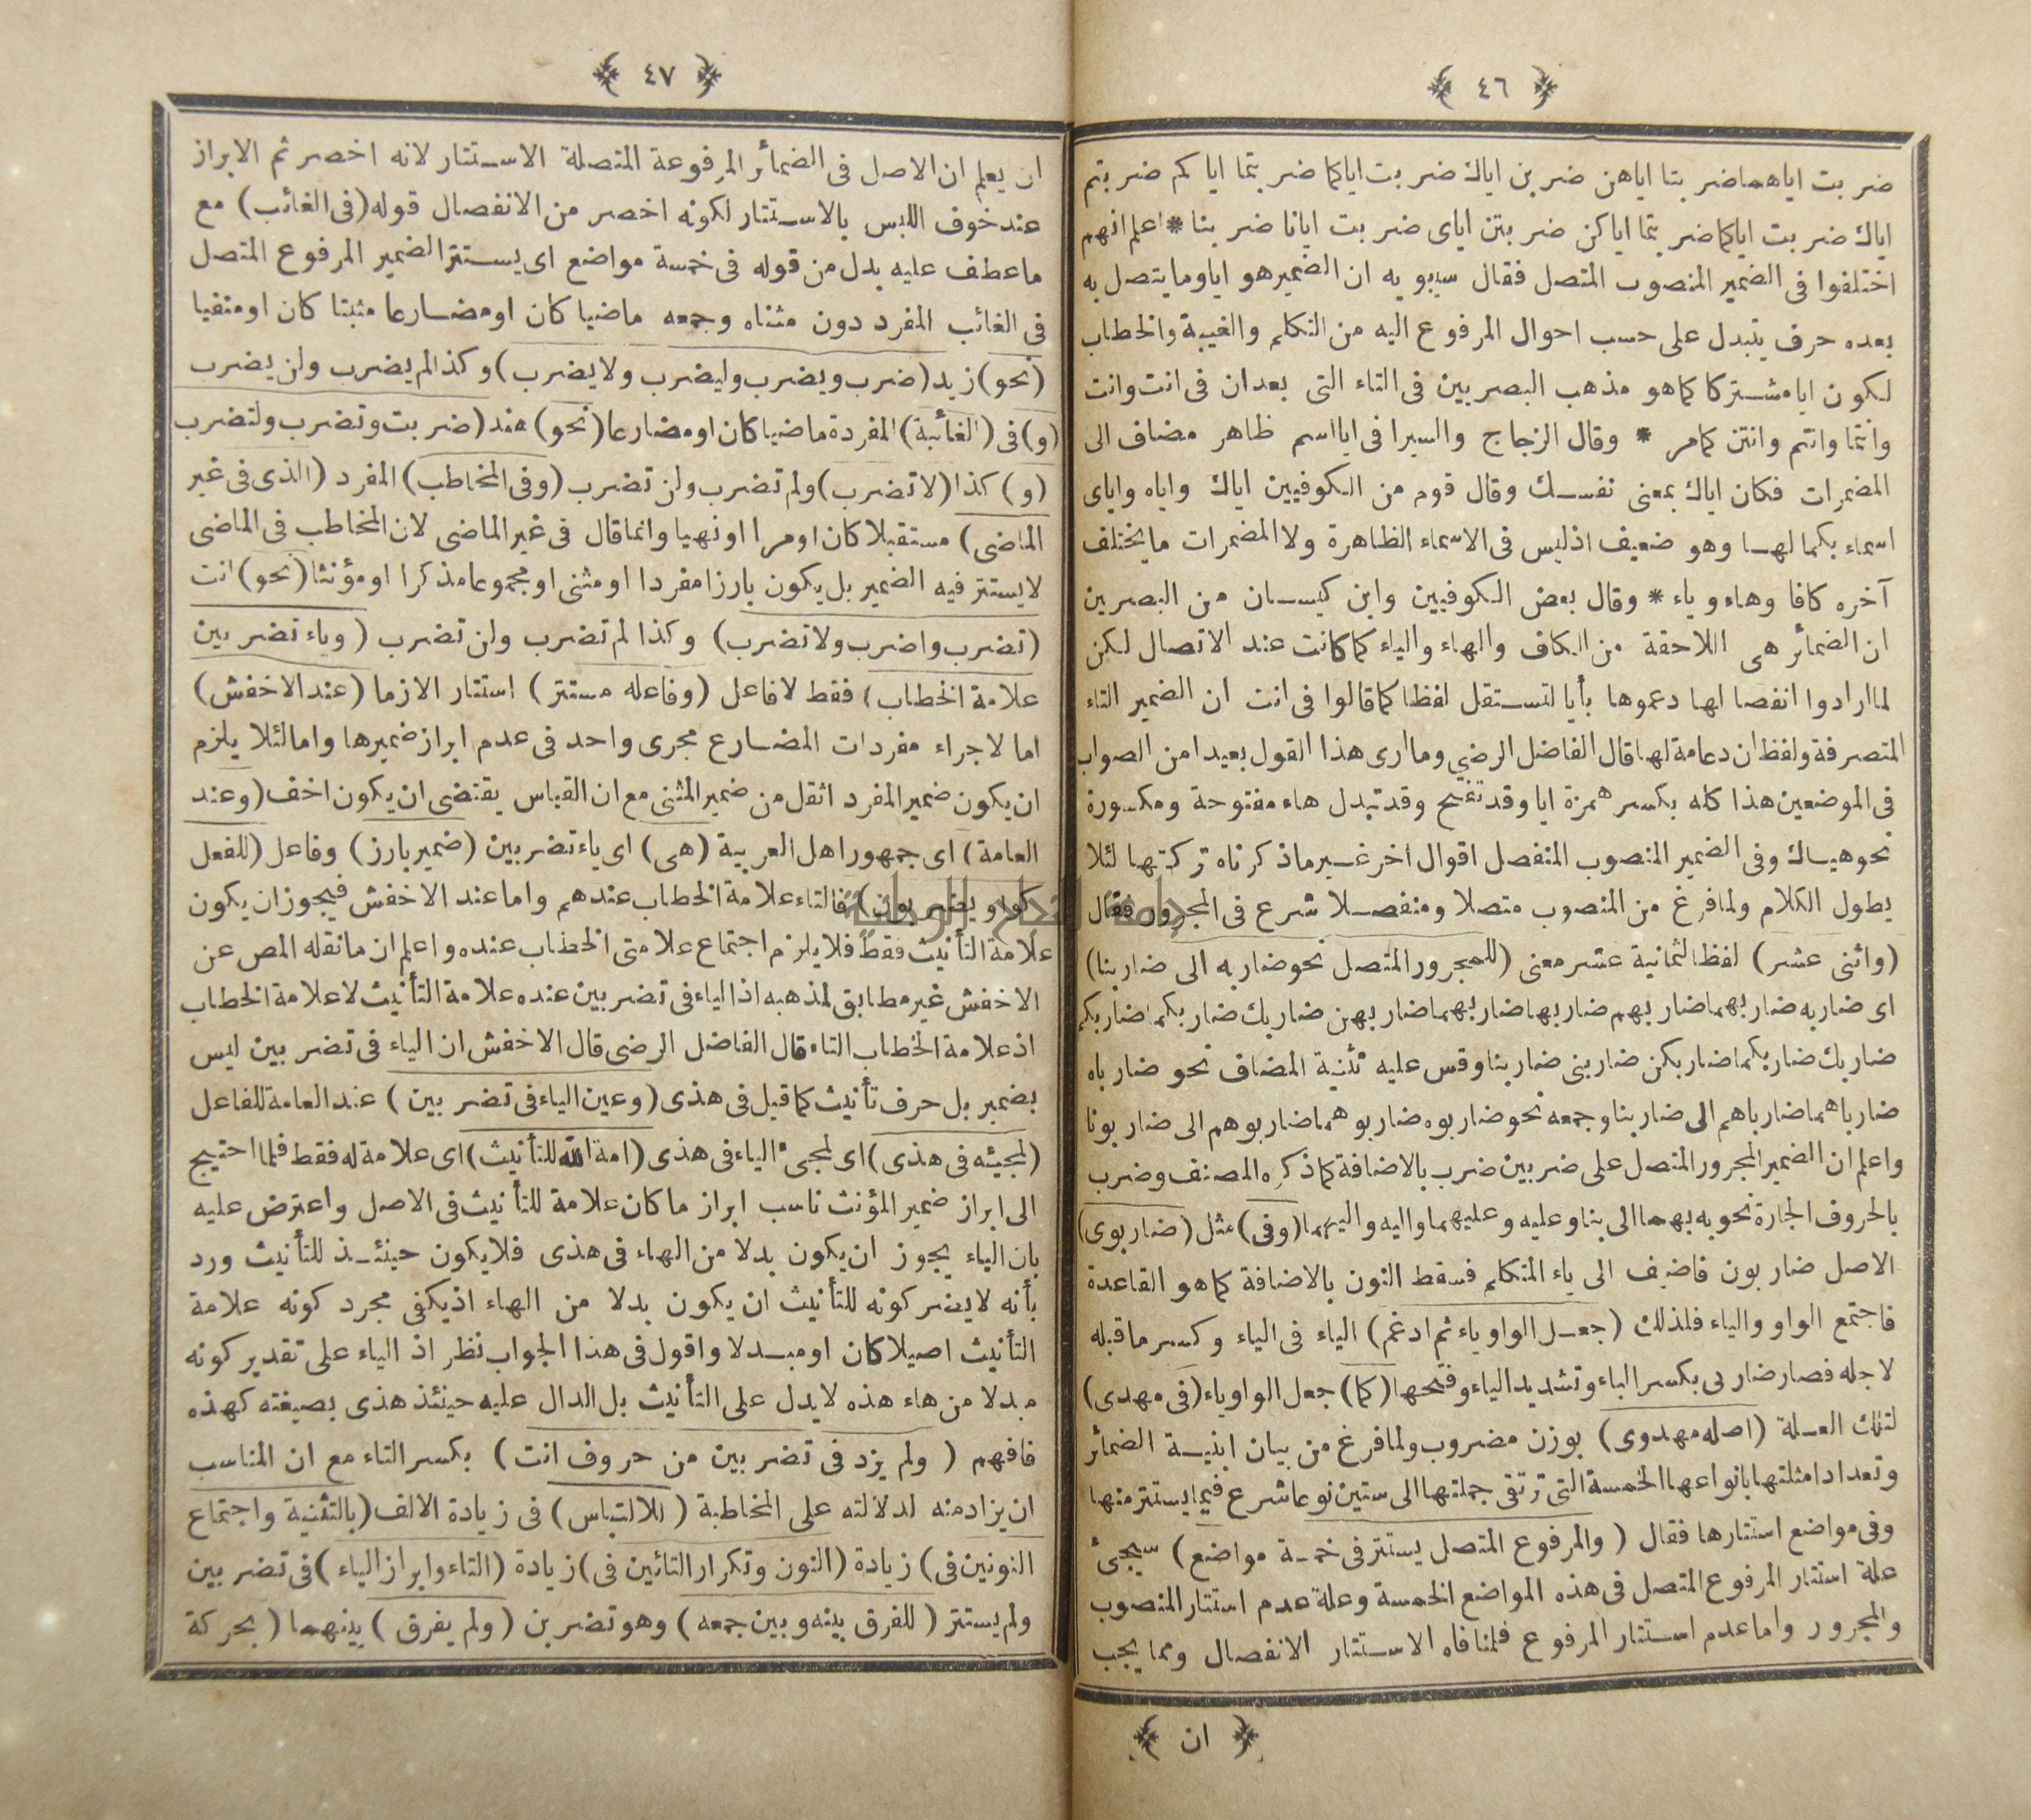 ﴿ ٤٦ ﴾
ضربت اياهما ضربتا اياهن ضربن اياك ضربت اياكما ضربتما اياكم ضربتم
اياك ضربت اياكما ضربتما اياكن ضربتن اياى ضربت ايانا ضربنا * اعلم انهم
اختلفوا فى الضمير المنصوب المتصل فقال سيبويه ان الضمير هو ايا وما يتصل به
بعده حرف يتبدل على حسب احوال المرفوع اليه من التكلم والغيبة والخطاب
لكون ايا مشتركا كما هو مذهب البصريين فى التاء التى بعد ان فى انت وانت
وانتما وانتم وانتن كمامر * وقال الزجاج والسيرا فى ايا اسم ظاهر مضاف الى
المضمرات فكان اياك بمعنى نفسك وقال قوم من الكوفيين اياك واياه واياى
اسماء بكمالها وهو ضعيف اذ ليس فى الاسماء الظاهرة ولا المضمرات ما يختلف
آخره كافا وهاء وياء * وقال بعض الكوفيين وابن كيسان من البصرين
ان الضمائر هى اللاحقة من الكاف والهاء والياء كما كانت عند الاتصال لكن
لما ارادوا انفصالها دعموها بأيا لتستقل لفظا كما قالوا فى انت ان الضمير التاء
المتصرفة ولفظ ان دعامة لها قال الفاضل الرضى وما ارى هذا القول بعيدا من الصواب
فى الموضعين هذا كله بكسر همزة ايا وقد تفتح وقد تبدل هاء مفتوحة ومكسورة
نحو هياك وفى الضمير المنصوب المنفصل اقوال اخر غير ماذكرناه تركتها لئلا
يطول الكلام ولما فرغ من المنصوب متصلا ومنفصلا شرع فى المجرور فقال
(واثنى عشر) لفظا لثمانية عشر معنى (للمجرور المتصل نحو ضاربه الى ضاربنا)
اى ضاربه ضاربهما ضاربهم ضاربها ضاربهما ضاربهن ضاربك ضاربكما ضاربكم
ضاربك ضاربكما ضاربكن ضاربنى ضاربنا وقس عليه تثنية المضاف نحو ضارباه
ضارباهما ضارباهم الى ضاربنا وجمعه نحو ضاربوه ضاربوهما ضاربوهم الى ضاربونا
واعلم ان الضمير المجرور المتصل على ضربين ضرب بالاضافة كما ذكره المصنف وضرب
بالحروف الجارة نحو به بهما الى بنا وعليه وعليهما واليه واليهما (وفى) مثل (ضاربوى)
الاصل ضاربون فاضيف الى ياء المتكلم فسقط النون بالاضافة كما هو القاعدة
فاجتمع الواو والياء فلذلك (جعل الواو ياء ثم ادغم) الياء فى الياء وكسر ما قبله
لاجله فصار ضاربى بكسر الباء وتشديد الياء وفتحها (كما) جعل الواو ياء (فى مهدى)
لتلك العلة (اصله مهدوى) بوزن مضروب ولما فرغ من بيان ابنية الضمائر
وتعداد امثلتها بانواعها الخمسة التى ترتقى جملتها الى ستين نوعا شرع فيما يستتر منها
وفى مواضع استتارها فقال (والمرفوع المتصل يستتر فى خمسة مواضع) سيجئ
علة استتار المرفوع المتصل فى هذه المواضع الخمسة وعلة عدم استتار المنصوب
والمجرور واما عدم استتار المرفوع فلمنافاه الاستتار الانفصال ومما يجب
﴿ ان ﴾
﴿ ٤٧ ﴾
ان يعلم ان الاصل فى الضمائر المرفوعة المتصلة الاستتار لانه اخصر ثم الابراز
عند خوف اللبس بالاستتار لكونه اخصر من الانفصال قوله (فى الغائب) مع
ما عطف عليه بدل من قوله فى خمسة مواضع اى يستتر الضمير المرفوع المتصل
فى الغائب المفرد دون مثناه وجمعه ماضيا كان او مضارعا مثبتا كان او منفيا
(نحو) زيد (ضرب ويضرب وليضرب ولا يضرب) وكذا لم يضرب ولن يضرب
(و) فى (الغائبة) المفردة ماضيا كان او مضارعا (نحو) هند (ضربت وتضرب ولتضرب
(و) كذا (لا تضرب) ولم تضرب ولن تضرب (وفى المخاطب) المفرد (الذى فى غير
الماضى) مستقبلا كان او مرا او نهيا وانما قال فى غير الماضى لان المخاطب فى الماضى
لا يستتر فيه الضمير بل يكون بارزا مفردا او مثنى او مجموعا مذكرا او مؤنثا (نحو) انت
(تضرب واضرب ولا تضرب) وكذا لم تضرب ولن تضرب (وياء تضربين
علامة الخطاب) فقط لا فاعل (وفاعله مستتر) استتار الازما (عند الاخفش)
اما لاجراء مفردات المضارع مجرى واحد فى عدم ابراز ضميرها واما لئلا يلزم
ان يكون ضمير المفرد اثقل من ضمير المثنى مع ان القياس يقتضى ان يكون اخف (وعند
العامة) اى جمهور اهل العربية (هى) اى ياء تضربين (ضمير بارز) وفاعل (للفعل
كواو يضربون) فالتاء علامة الخطاب عندهم واما عند الاخفش فيجوز ان يكون
علامة التأنيث فقط فلا يلزم اجتماع علامتى الخطاب عنده واعلم ان ما نقله المص عن
الاخفش غير مطابق لمذهبه اذ الياء فى تضربين عنده علامة التأنيث لا علامة الخطاب
اذ علامة الخطاب التاء قال الفاضل الرضى قال الاخفش ان الياء فى تضربين ليس
بضمير بل حرف تأنيث كما قيل فى هذى (وعين الياء فى تضربين) عند العامة للفاعل
(لمجيئه فى هذى) اى لمجئ الياء فى هذى (امة الله للتأنيث) اى علامة له فقط فلما احتيج
الى ابراز ضمير المؤنث ناسب ابراز ما كان علامة للتأنيث فى الاصل واعترض عليه
بان الياء يجوز ان يكون بدلا من الهاء فى هذى فلا يكون حينئذ للتأنيث ورد
بأنه لا يضر كونه للتأنيث ان يكون بدلا من الهاء اذ يكفى مجرد كونه علامة
التأنيث اصيلا كان او مبدلا واقول فى هذا الجواب نظر اذ الياء على تقدير كونه
مبدلا من هاء هذه لا يدل على التأنيث بل الدال عليه حينئذ هذى بصيغته كهذه
فافهم (ولم يزد فى تضربين من حروف انت) بكسر التاء مع ان المناسب
ان يزاد منه لدلالته على المخاطبة (للالتباس) فى زيادة الالف (بالتثنية واجتماع
النونين فى) زيادة (النون وتكرار التائين فى) زيادة (التاء وابراز الياء) فى تضربين
ولم يستتر (للفرق بينه وبين جمعه) وهو تضربن (ولم يفرق) بينهما (بحركة